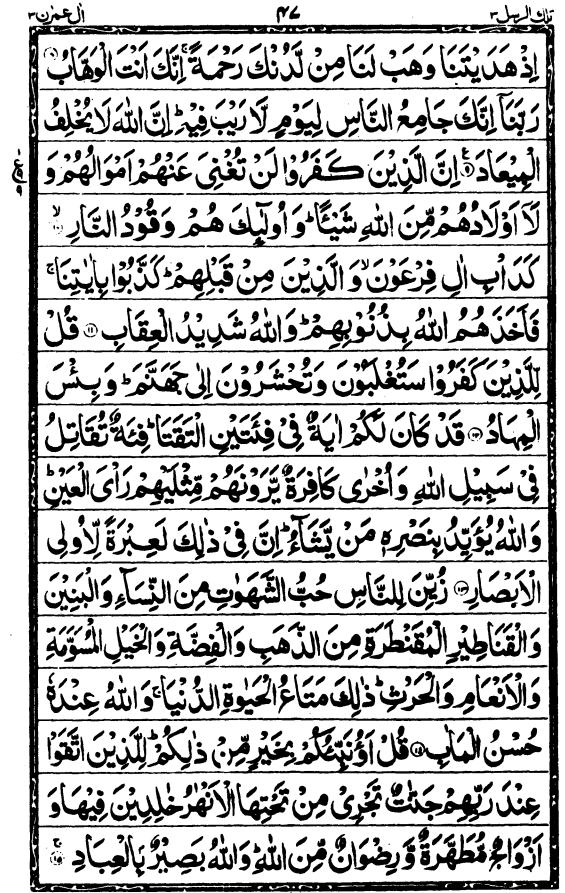 تلك الرسل ٣ ٤٧ اٰل عمرٰن ٣
اِذْ هَدَيْتَنَا وَهَبْ لَنَا مِنْ لَّدُنْكَ رَحْمَةً ۚ اِنَّكَ اَنْتَ الْوَهَّابُ ﴿٨﴾
رَبَّنَآ اِنَّكَ جَامِعُ النَّاسِ لِيَوْمٍ لَّا رَيْبَ فِيْهِ ؕ اِنَّ اللّٰهَ لَا يُخْلِفُ
الْمِيْعَادَ ﴿٩﴾ اِنَّ الَّذِيْنَ كَفَرُوْا لَنْ تُغْنِيَ عَنْهُمْ اَمْوَالُهُمْ وَ
لَآ اَوْلَادُهُمْ مِّنَ اللّٰهِ شَيْـًٔا ؕ وَاُولٰٓئِكَ هُمْ وَقُوْدُ النَّارِ ۙ﴿١٠﴾
كَدَاْبِ اٰلِ فِرْعَوْنَ ۙ وَالَّذِيْنَ مِنْ قَبْلِهِمْ ؕ كَذَّبُوْا بِاٰيٰتِنَا ۚ
فَاَخَذَهُمُ اللّٰهُ بِذُنُوْبِهِمْ ؕ وَاللّٰهُ شَدِيْدُ الْعِقَابِ ﴿١١﴾ قُلْ
لِّلَّذِيْنَ كَفَرُوْا سَتُغْلَبُوْنَ وَتُحْشَرُوْنَ اِلٰى جَهَنَّمَ ؕ وَبِئْسَ
الْمِهَادُ ﴿١٢﴾ قَدْ كَانَ لَكُمْ اٰيَةٌ فِيْ فِئَتَيْنِ الْتَقَتَا ؕ فِئَةٌ تُقَاتِلُ
فِيْ سَبِيْلِ اللّٰهِ وَاُخْرٰى كَافِرَةٌ يَّرَوْنَهُمْ مِّثْلَيْهِمْ رَاْيَ الْعَيْنِ ؕ
وَاللّٰهُ يُؤَيِّدُ بِنَصْرِهٖ مَنْ يَّشَآءُ ؕ اِنَّ فِيْ ذٰلِكَ لَعِبْرَةً لِّاُولِي
الْاَبْصَارِ ﴿١٣﴾ زُيِّنَ لِلنَّاسِ حُبُّ الشَّهَوٰتِ مِنَ النِّسَآءِ وَالْبَنِيْنَ
وَالْقَنَاطِيْرِ الْمُقَنْطَرَةِ مِنَ الذَّهَبِ وَالْفِضَّةِ وَالْخَيْلِ الْمُسَوَّمَةِ
وَالْاَنْعَامِ وَالْحَرْثِ ؕ ذٰلِكَ مَتَاعُ الْحَيٰوةِ الدُّنْيَا ۚ وَاللّٰهُ عِنْدَهٗ
حُسْنُ الْمَاٰبِ ﴿١٤﴾ قُلْ اَؤُنَبِّئُكُمْ بِخَيْرٍ مِّنْ ذٰلِكُمْ ؕ لِلَّذِيْنَ اتَّقَوْا
عِنْدَ رَبِّهِمْ جَنّٰتٌ تَجْرِيْ مِنْ تَحْتِهَا الْاَنْهٰرُ خٰلِدِيْنَ فِيْهَا وَ
اَزْوَاجٌ مُّطَهَّرَةٌ وَّرِضْوَانٌ مِّنَ اللّٰهِ ؕ وَاللّٰهُ بَصِيْرٌۢ بِالْعِبَادِ ۚ﴿١٥﴾